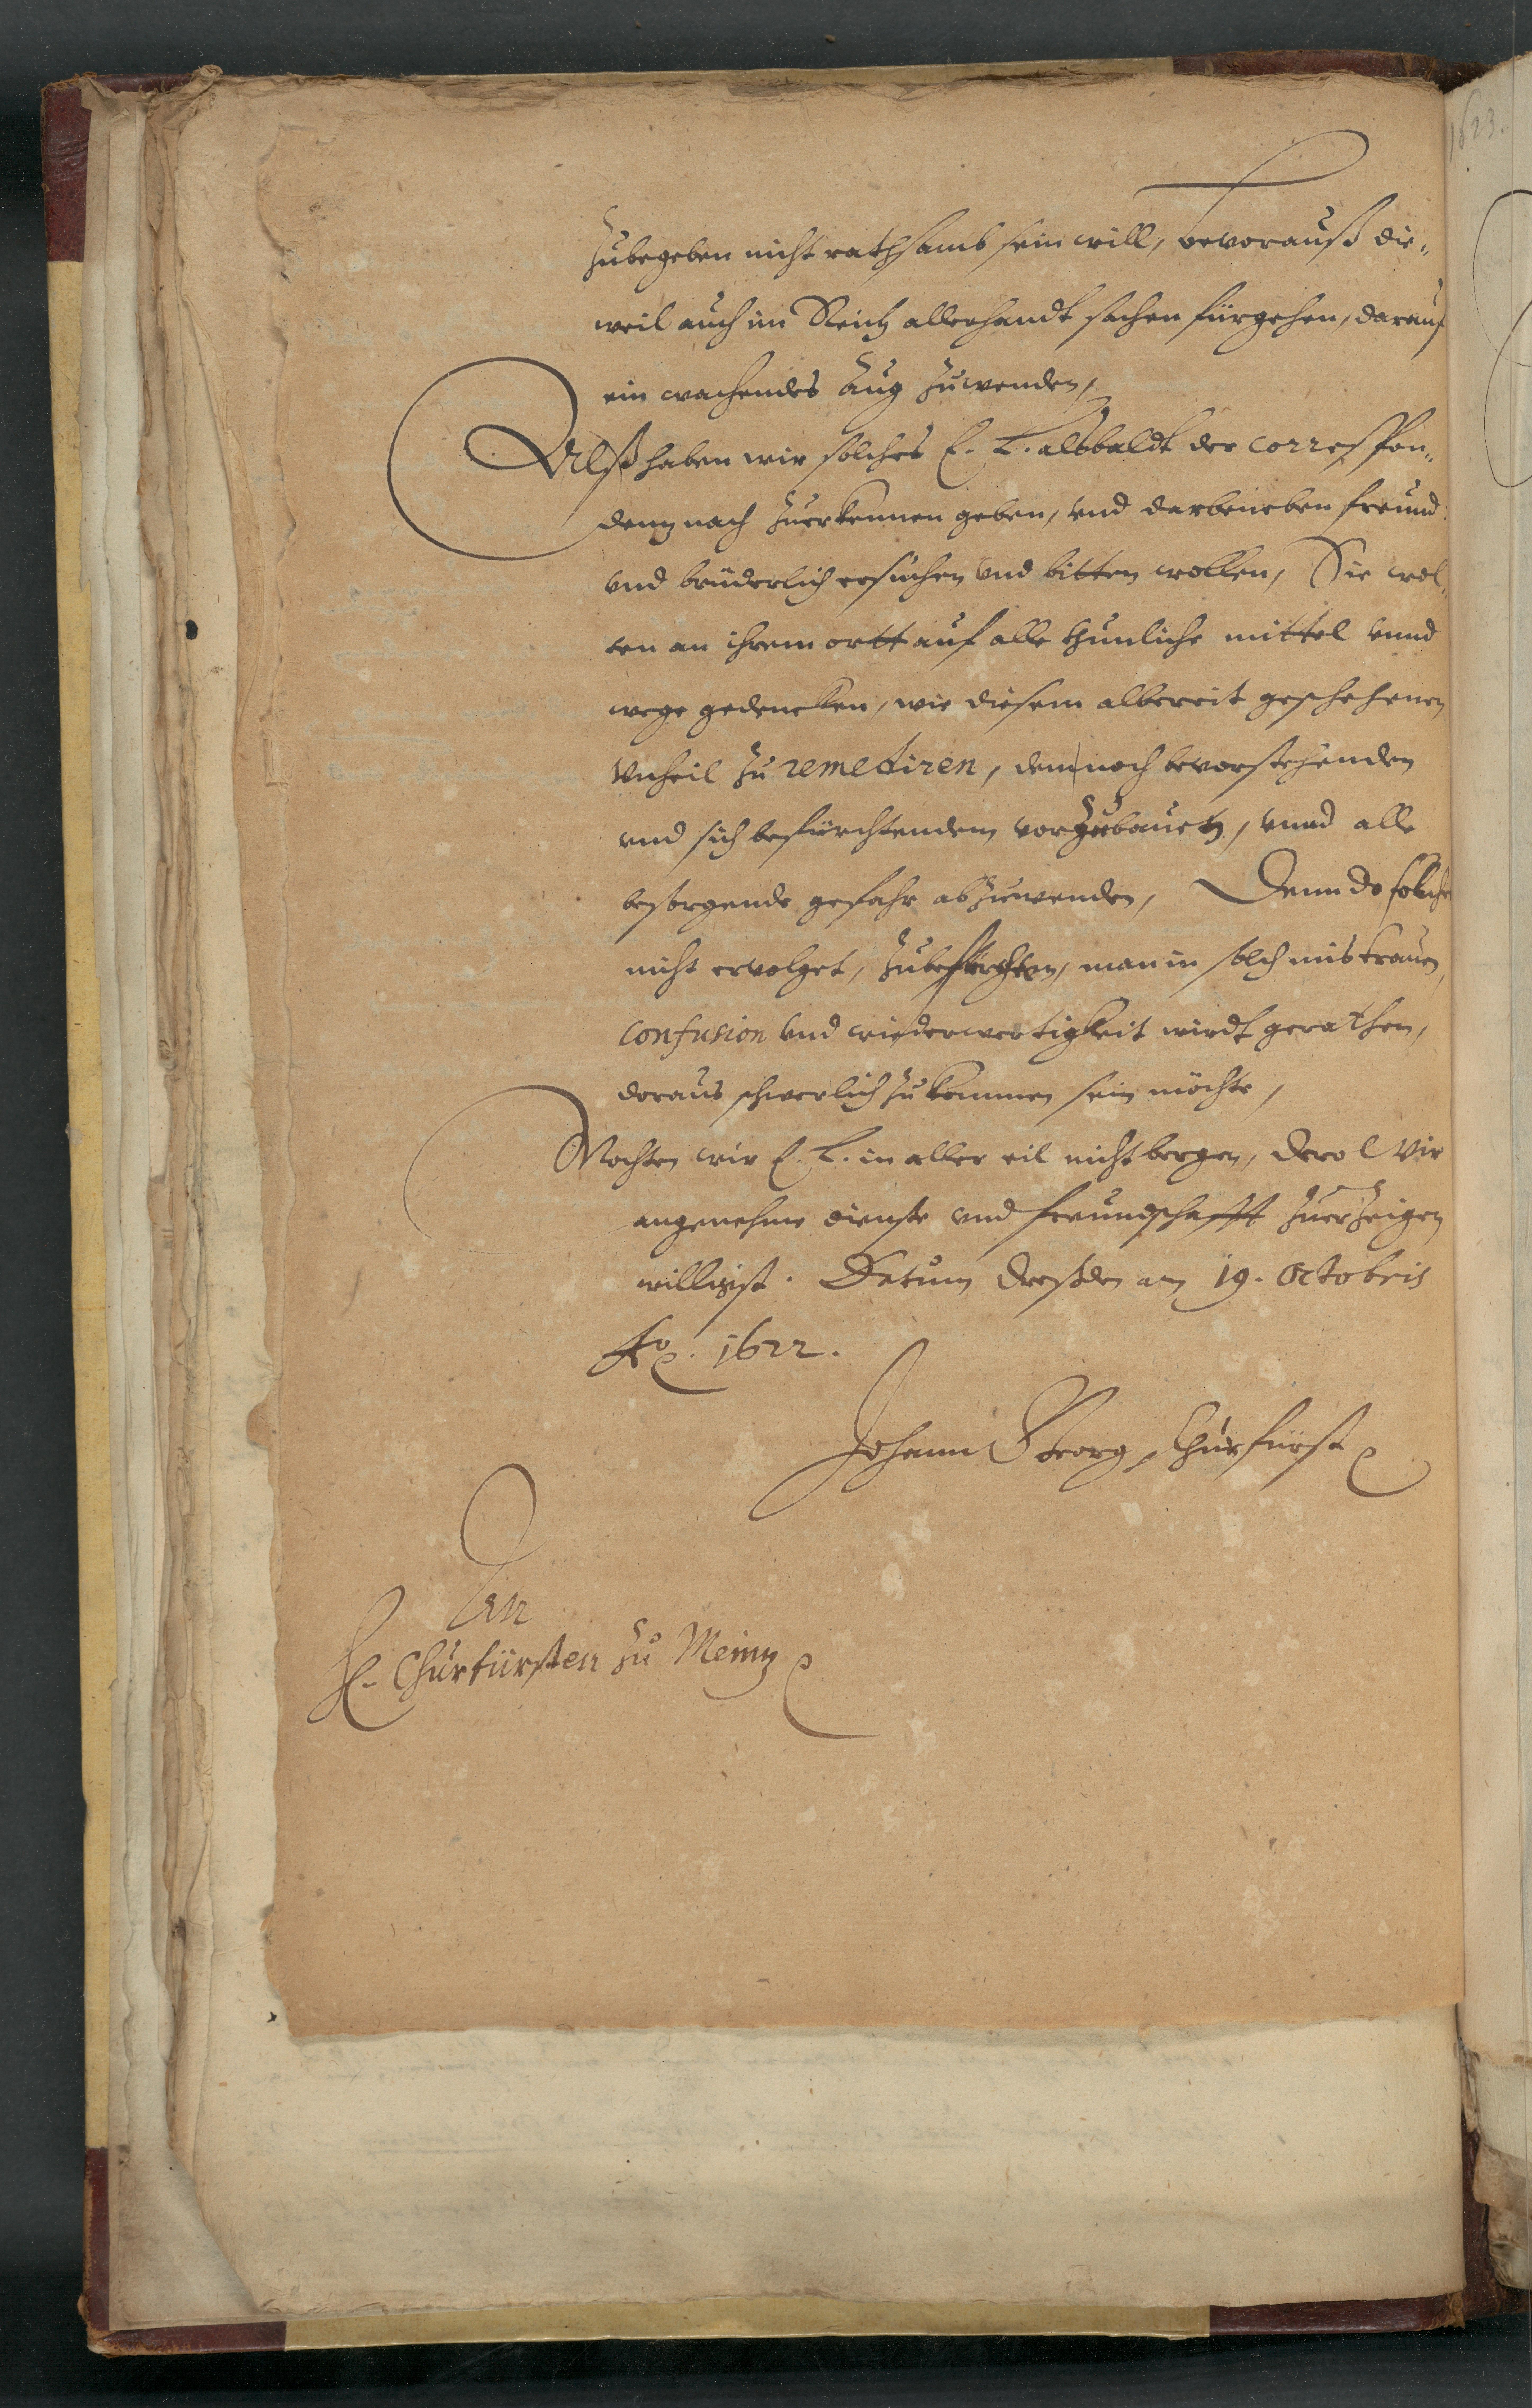 zubegeben nicht rathsamb sein will, bevorauß die„
weil auch im Reich allerhandt sachen fürgehen, darauf
ein wachendes Aug zuwenden,
Alß haben wir solches E. L. alsbaldt der correspon„
dentz nach zuerkennen geben, vnd darbeneben freund
vnd brüderlich ersuchen vnd bitten wollen, Sie wol„
ten an ihrem ortt auf alle thunliche mittel vnnd
wege gedencken, wie diesem albereit geschehenen
Vnheil zu remediren, dem noch bevorstehenden
vnd sich befürchtendem vorzubauen, vnnd alle
besorgende gefahr abzuwenden, Denn do solches
nicht ervolget, zubefürchten, man in solch mistrauen,
confusion vnd wiederwertigkeit wirdt gerathen,
doraus schwerlich zu kommen sein möchte,
Mochten wir E. L. in aller eil nicht bergen, dero wir
angenehme dienste vnd freundschafft zuerzeigen
willigst. Datum Dreßden am 19. Octobris
Ao. 1622.
Johann Georg, Churfürst
An
H. Churfürsten zu Meintz
1623.